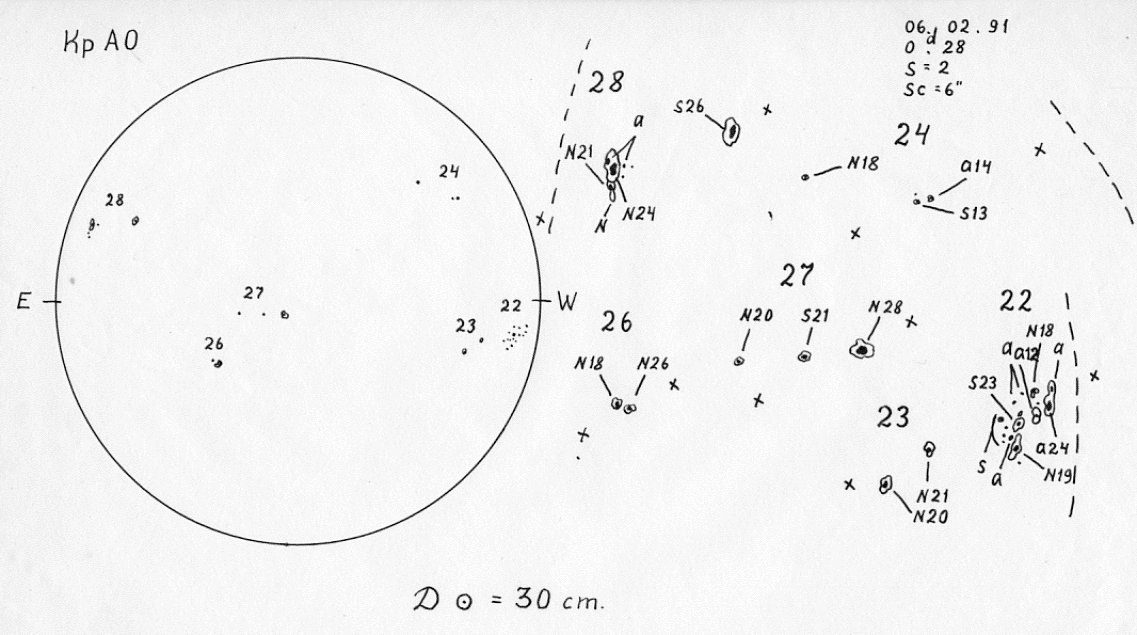 Кр АО
06 02.91
0 d. 28
S = 2
Sc = 6"
24
28
27
26
22
23
E
W
28
a
S26
N21
N24
N
N18
24
a14
S13
27
N20
S21
N28
26
N18
N26
22
N18
a
a12
a
S23
S
a
a24
N19
23
N21
N20
D ⊙ = 30 cm.